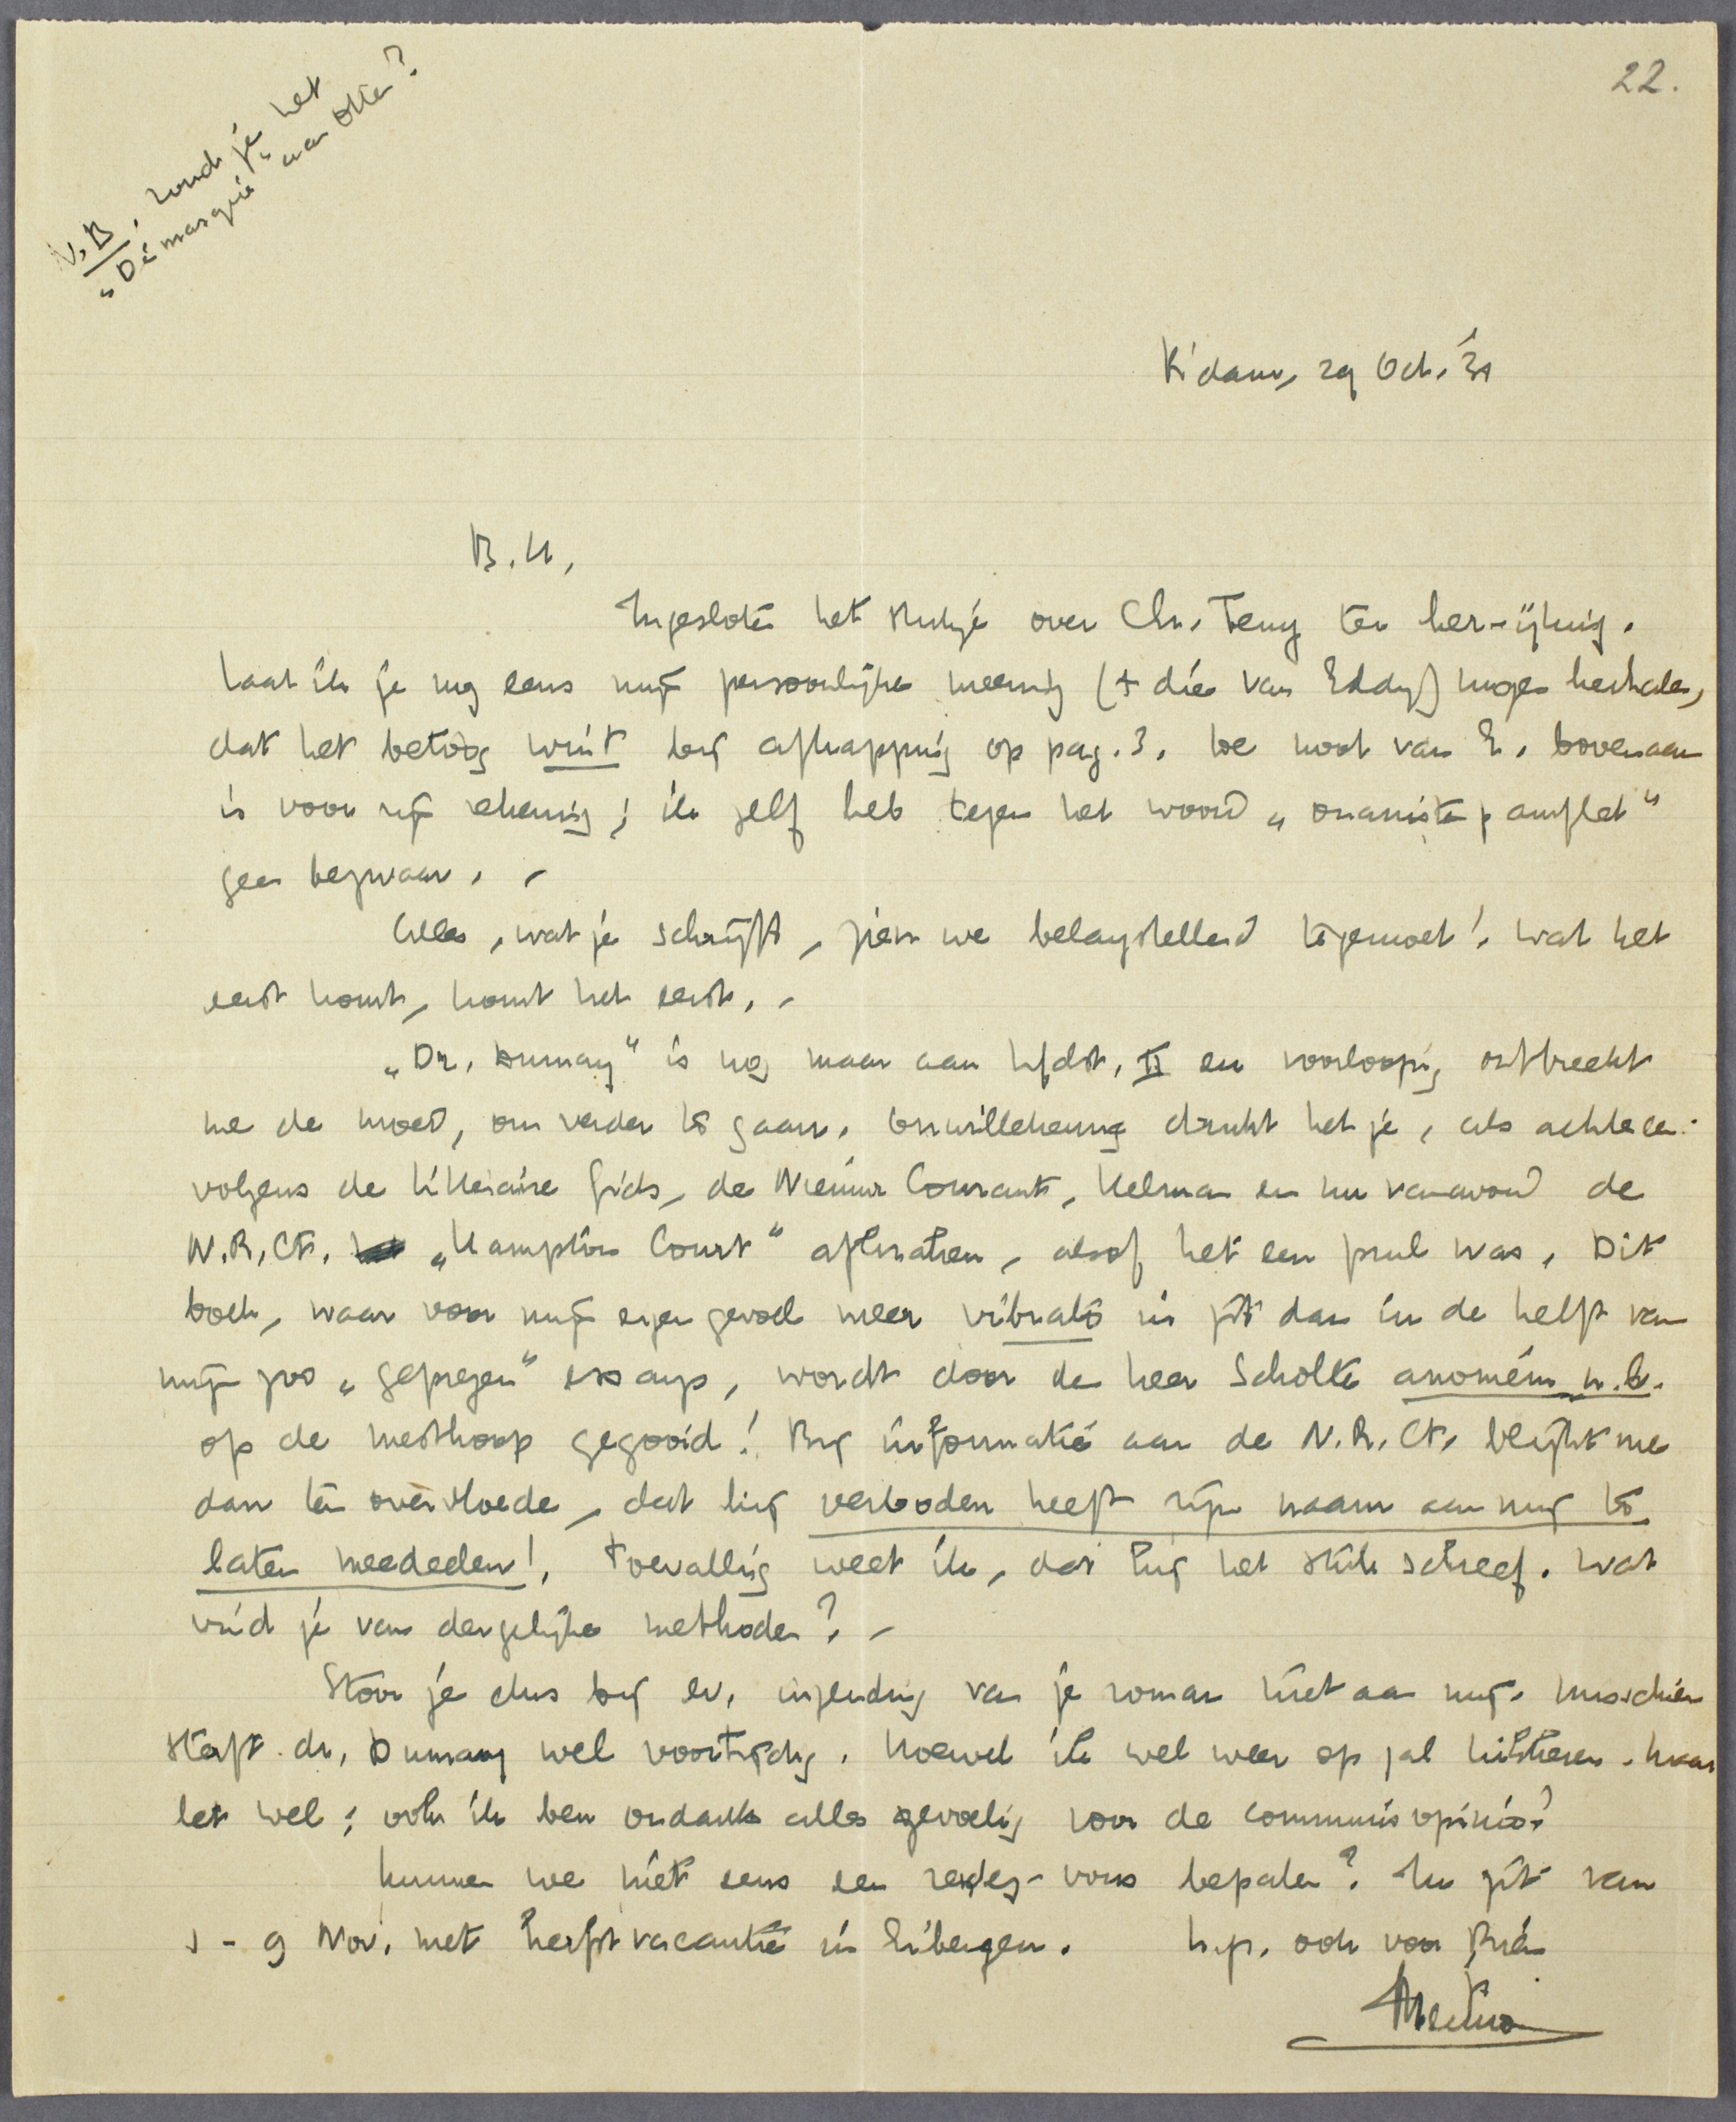 22.
N.B. Zond je het
„Démasqué" aan Otten?
R'dam, 29 Oct. '31
B.H,
Ingesloten het stukje over Chr. Terug ter her-ijking.
Laat ik je nog eens mijn persoonlijke meening (+ die van Eddy!) mogen herhalen,
dat het betoog wint bij afkapping op pag. 3. De noot van E. bovenaan
is voor zijn rekening; ik zelf heb tegen het woord „onanistenpamflet"
geen bezwaar. -
Alles, wat je schrijft, zien we belangstellend tegemoet! Wat het
eerst komt, komt het eerst. -
„Dr. Dumay" is nog maar aan hfdst. II en voorloopig ontbreekt
me de moed, om verder te gaan. Onwillekeurig drukt het je, als achtereen-
volgens de Litteraire Gids, de Nieuwe Courant, Helman en nu vanavond de
N.R.Ct. „Hampton Court" afkraken, alsof het een prul was. Dit
boek, waar voor mijn eigen gevoel meer vibrato in zit dan in de helft van
mijn zoo „geprezen" essays, wordt door den heer Scholte anoniem n.b.
op de mesthoop gegooid! Bij informatie aan de N.R.Ct. blijkt me
dan ten overvloede, dat hij verboden heeft zijn naam aan mij te
laten meedeelen! Toevallig weet ik, dat hij het stuk schreef. Wat
vind je van dergelijke methoden? -
Stoor je dus bij ev. inzending van je roman niet aan mij. Misschien
sterft dr. Dumay wel voortijdig. Hoewel ik wel weer op zal krikken. Maar
let wel: ook ik ben ondanks alles gevoelig voor de communis opinio!
Kunnen we niet eens een rendez-vous bepalen? Ik zit van
1 - 9 Nov. met herfstvacantie in Eibergen. h.gr. ook voor Rien
Menno